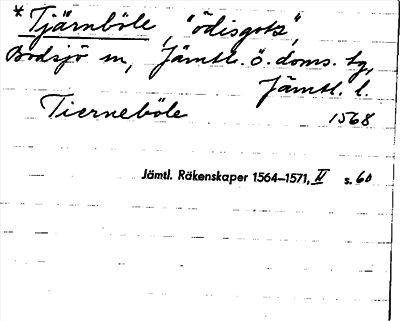 * Tjärnböle, "ödisgots",
Bodsjö sn, Jämtl. ö. doms. tg,
Jämtl. l.
Tierneböle 1568
Jämtl. Räkenskaper 1564–1571, IV s. 60